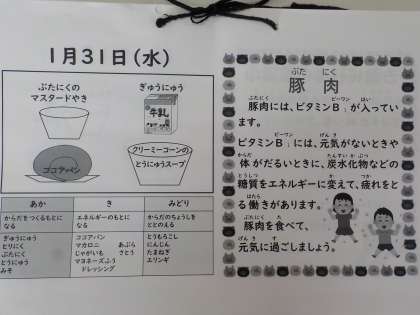 1月31日(水)
ぶたにくの
マスタードやき
ぎゅうにゅう
牛乳
ココアパン
クリーミーコーンの
とうにゅうスープ
あか き みどり
からだをつくるもとに
なる
エネルギーのもとに
なる
からだのちょうしを
ととのえる
ぎゅうにゅう
とりにく
ぶたにく
とうにゅう
みそ
ココアパン
マカロニ あぶら
じゃがいも さとう
マヨネーズふう
ドレッシング
とうもろこし
にんじん
たまねぎ
エリンギ
ぶた にく
豚肉
ぶたにく ビーワン はい
豚肉には、ビタミンB₁が入ってい
ます。
ビーワン げんき
ビタミンB₁には、元気がないときや
からだ たんすいかぶつ
体がだるいときに、炭水化物などの
とうしつ か つか
糖質をエネルギーに変えて、疲れをと
はたら
る働きがあります。
ぶたにく た
豚肉を食べて、
げんき す
元気に過ごしましょう。